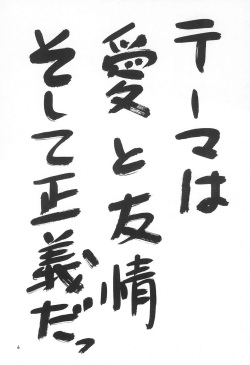 テーマは
愛と友情
そして正義だっ